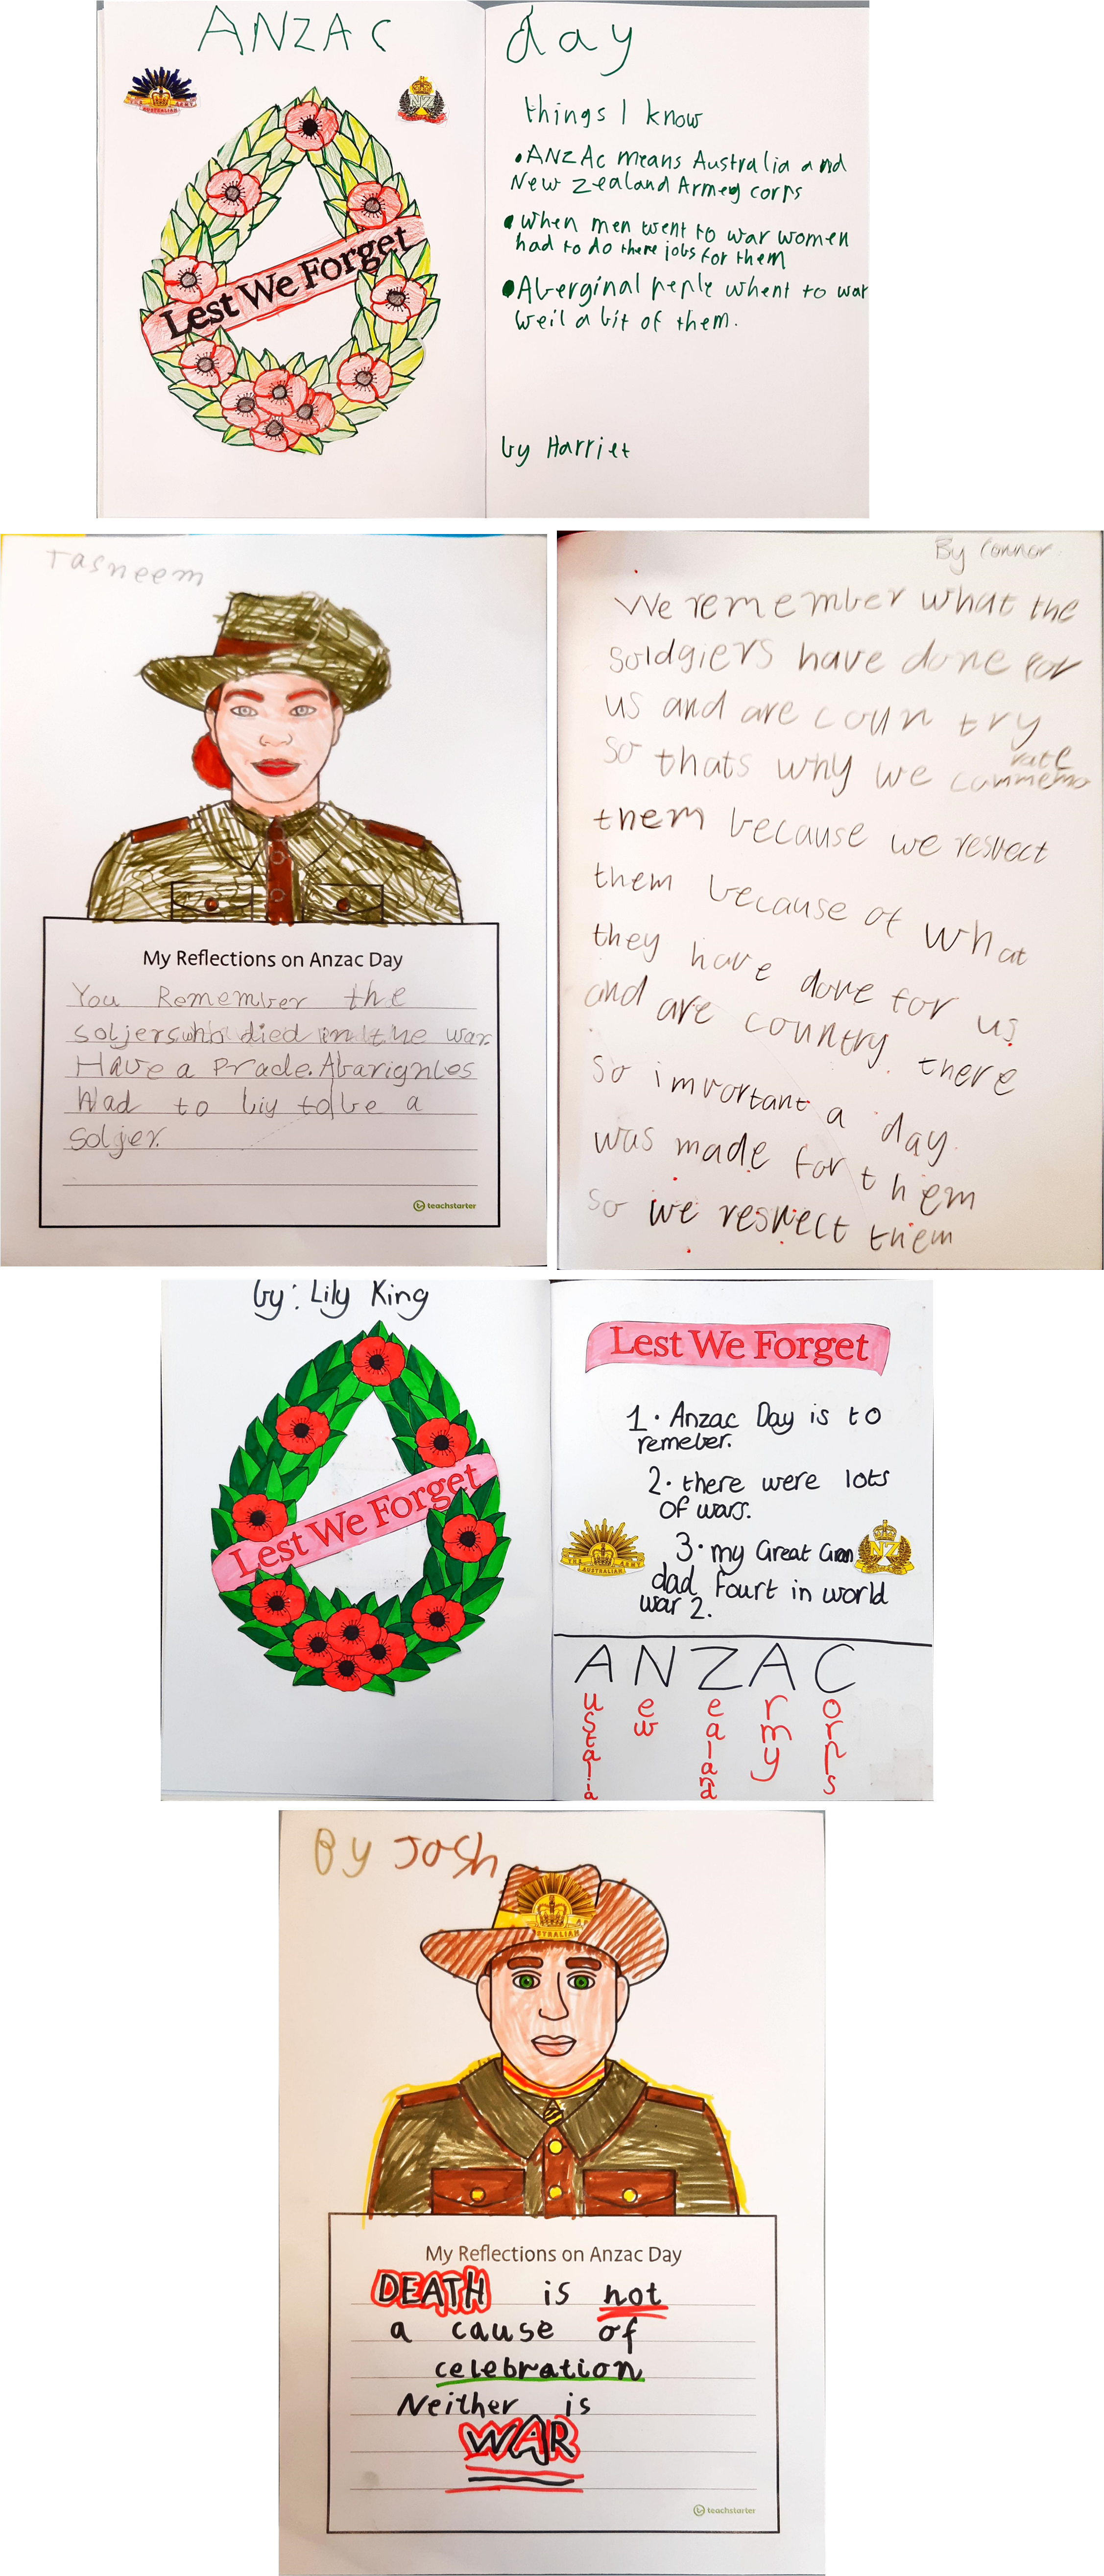 ANZAC day
THE ARMY
AUSTRALIAN
NZ
Lest We Forget
things I know
•ANZAc means Australia and
New Zealand Armey corps
•when men went to war women
had to do there jobs for them
•Aberginal peple whent to war
weil a bit of them.
by Harriet
Tasneem
My Reflections on Anzac Day
You Remember the
soljers who died in the war.
Have a Prade. Abarignles
Had to liy to be a
soljer.
teachstarter
By Connor
We remember what the
soldgiers have done for
us and are country
so thats why we commemo
rate
them because we respect
them because of what
they have done for us
and are country. there
so important a day
was made for them
so we respect them
by: Lily King
Lest We Forget
Lest We Forget
1. Anzac Day is to
remeber.
2. there were lots
of wars.
3. my Great Gran
dad fourt in world
war 2.
THE ARMY
AUSTRALIAN
NZ
ANZAC
ustalia
ew
ealand
rmy
orps
By Josh
My Reflections on Anzac Day
DEATH is not
a cause of
celebration
Neither is
WAR
teachstarter